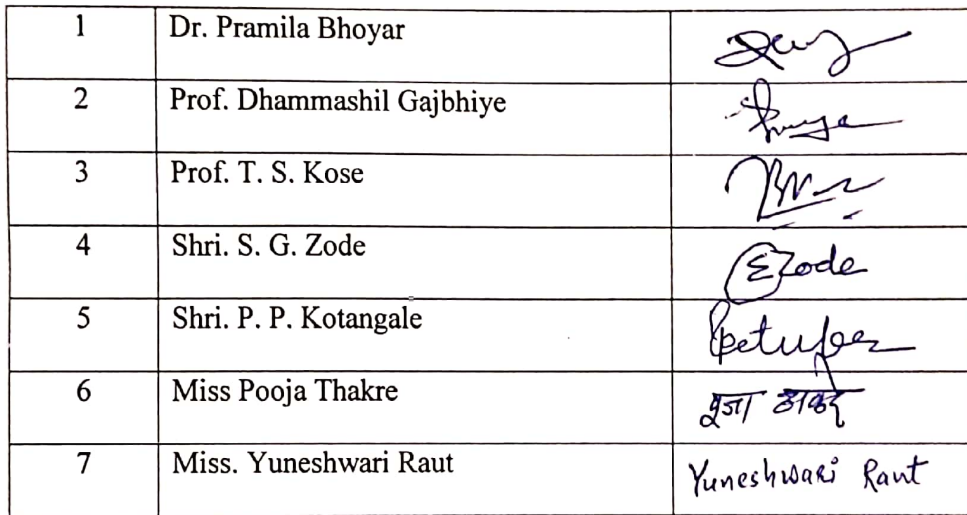 1 Dr. Pramila Bhoyar
2 Prof. Dhammashil Gajbhiye
3 Prof. T. S. Kose
4 Shri. S. G. Zode Zode
5 Shri. P. P. Kotangale
6 Miss Pooja Thakre पुजा ठाकरे
7 Miss. Yuneshwari Raut Yuneshwari Raut